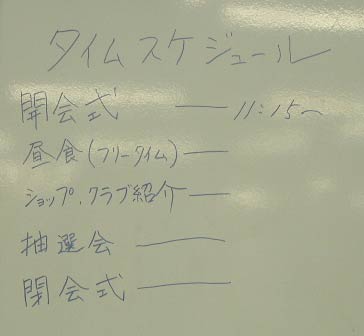 タイムスケジュール
開会式 — 11:15〜
昼食(フリータイム) —
ショップ.クラブ紹介 —
抽選会 —
閉会式 —